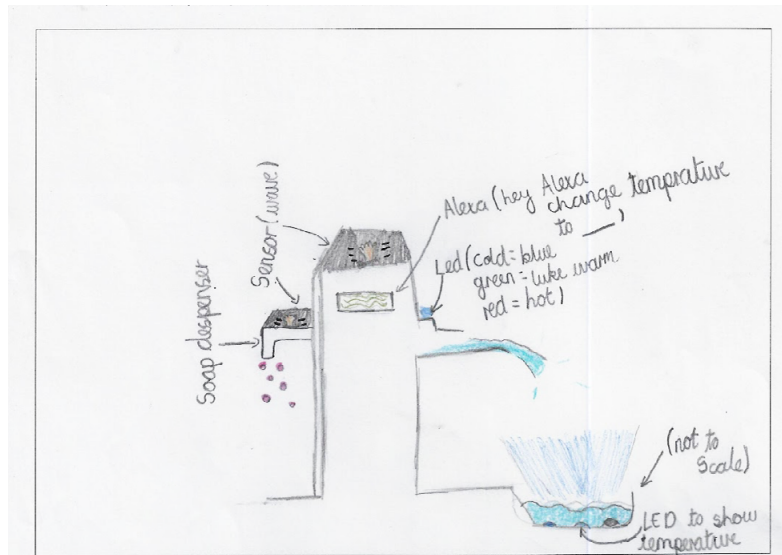 Soap despenser
Sensor (wave)
Alexa (hey Alexa
change temprative
to __)
Led (cold = blue
green = luke warm
red = hot)
(not to
Scale)
LED to show
temperative